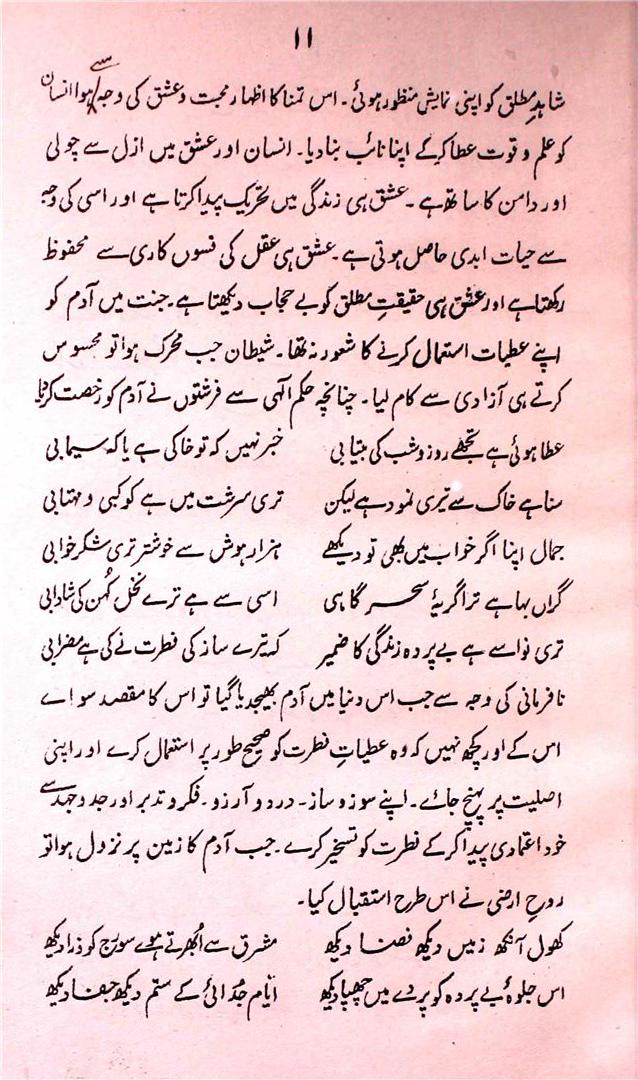 ۱۱
شاہدِ مطلق کو اپنی نمایش منظور ہوئی۔ اس تمنا کا اظہار محبت و عشق کی وجہ سے ہوا انسان
کو علم و قوت عطا کرکے اپنا نائب بنادیا۔ انسان اور عشق میں ازل سے چولی
اور دامن کا ساتھ ہے۔ عشق ہی زندگی میں تحریک پیدا کرتا ہے اور اسی کی وجہ
سے حیات ابدی حاصل ہوتی ہے۔ عشق ہی عقل کی فسوں کاری سے محفوظ
رکھتا ہے اور عشق ہی حقیقتِ مطلق کو بے حجاب دیکھتا ہے۔ جنت میں آدم کو
اپنے عطیات استعمال کرنے کا شعور نہ تھا۔ شیطان جب محرک ہوا تو محسوس
کرتے ہی آزادی سے کام لیا۔ چنانچہ حکم الٰہی سے فرشتوں نے آدم کو رخصت کردیا
عطا ہوئی ہے تجھے روز و شب کی بیتابی خبر نہیں کہ تو خاکی ہے یا کہ سیمابی
سنا ہے خاک سے تیری نمود ہے لیکن تری سرشت میں ہے کوکبی و مہتابی
جمال اپنا اگر خواب میں بھی تو دیکھے ہزار ہوش سے خوشتر تری شکر خوابی
گراں بہا ہے ترا گریۂ سحر گاہی اسی سے ہے ترے نخل کُہن کی شادابی
تری نوا سے ہے بے پردہ زندگی کا ضمیر کہ تیرے ساز کی فطرت نے کی ہے مضرابی
نافرمانی کی وجہ سے جب اس دنیا میں آدم بھیجدیا گیا تو اس کا مقصد سواے
اس کے اور کچھ نہیں کہ وہ عطیاتِ فطرت کو صحیح طور پر استعمال کرے اور اپنی
اصلیت پر پہنچ جائے۔ اپنے سوز و ساز۔ درد و آرزو۔ فکر و تدبر اور جد و جہد سے
خود اعتمادی پیدا کرکے فطرت کو تسخیر کرے۔ جب آدم کا زمین پر نزول ہوا تو
روحِ ارضی نے اس طرح استقبال کیا۔
کھول آنکھ زمیں دیکھ فلک دیکھ فضا دیکھ مشرق سے اُبھرتے ہوے سورج کو ذرا دیکھ
اس جلوۂ بے پردہ کو پردے میں چھپا دیکھ ایّام جُدائی کے ستم دیکھ جفا دیکھ